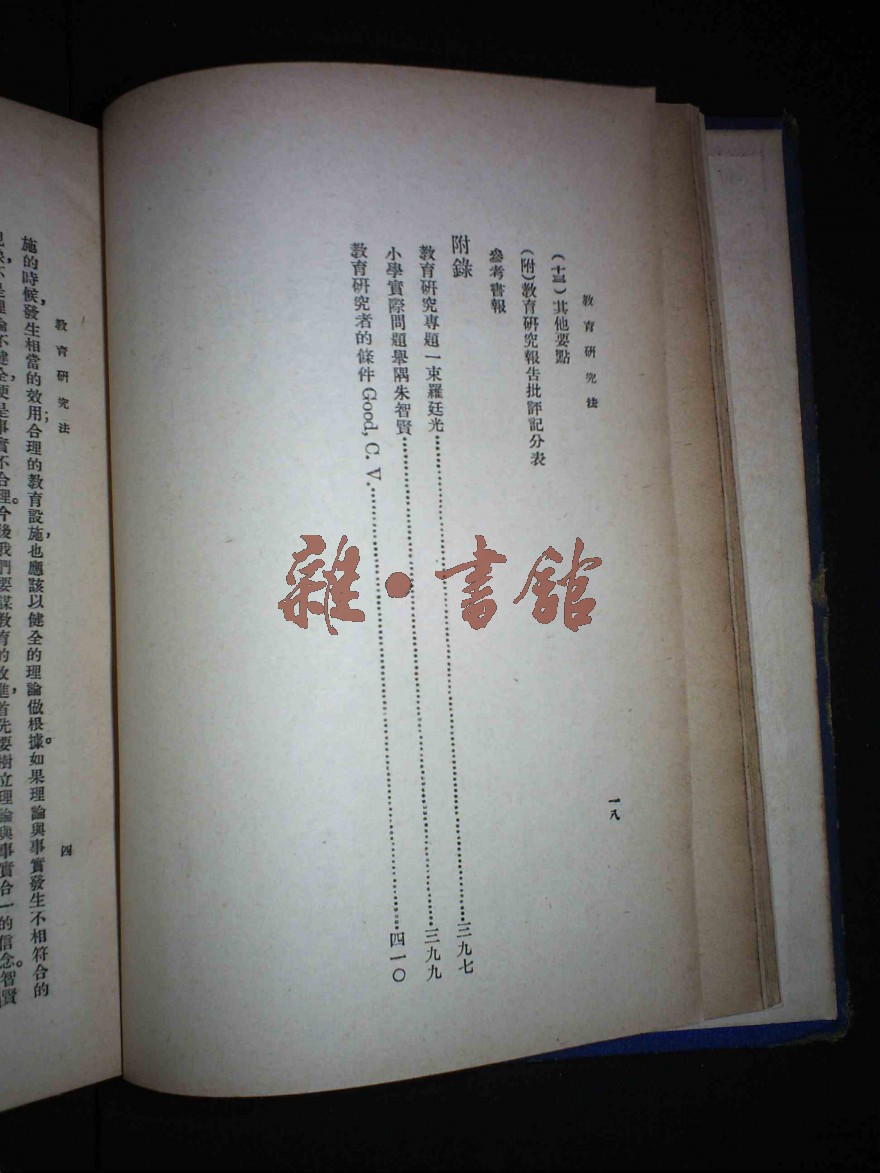 教育研究法
一八
(十三)其他要點
(附)教育研究報告批評記分表
參考書報
附錄
教育研究專題一束羅廷光……三九七
小學實際問題舉隅朱智賢……三九九
教育研究者的條件 Good, C. V.……四一〇
雜・書館
教育研究法
四
施的時候,發生相當的效用;合理的教育設施,也應該以健全的理論做根據。如果理論與事實發生不相符合的
不是理論不健全,便是事實不合理。今後我們要謀教育的改進,首先要樹立理論與事實合一的信念。智賢